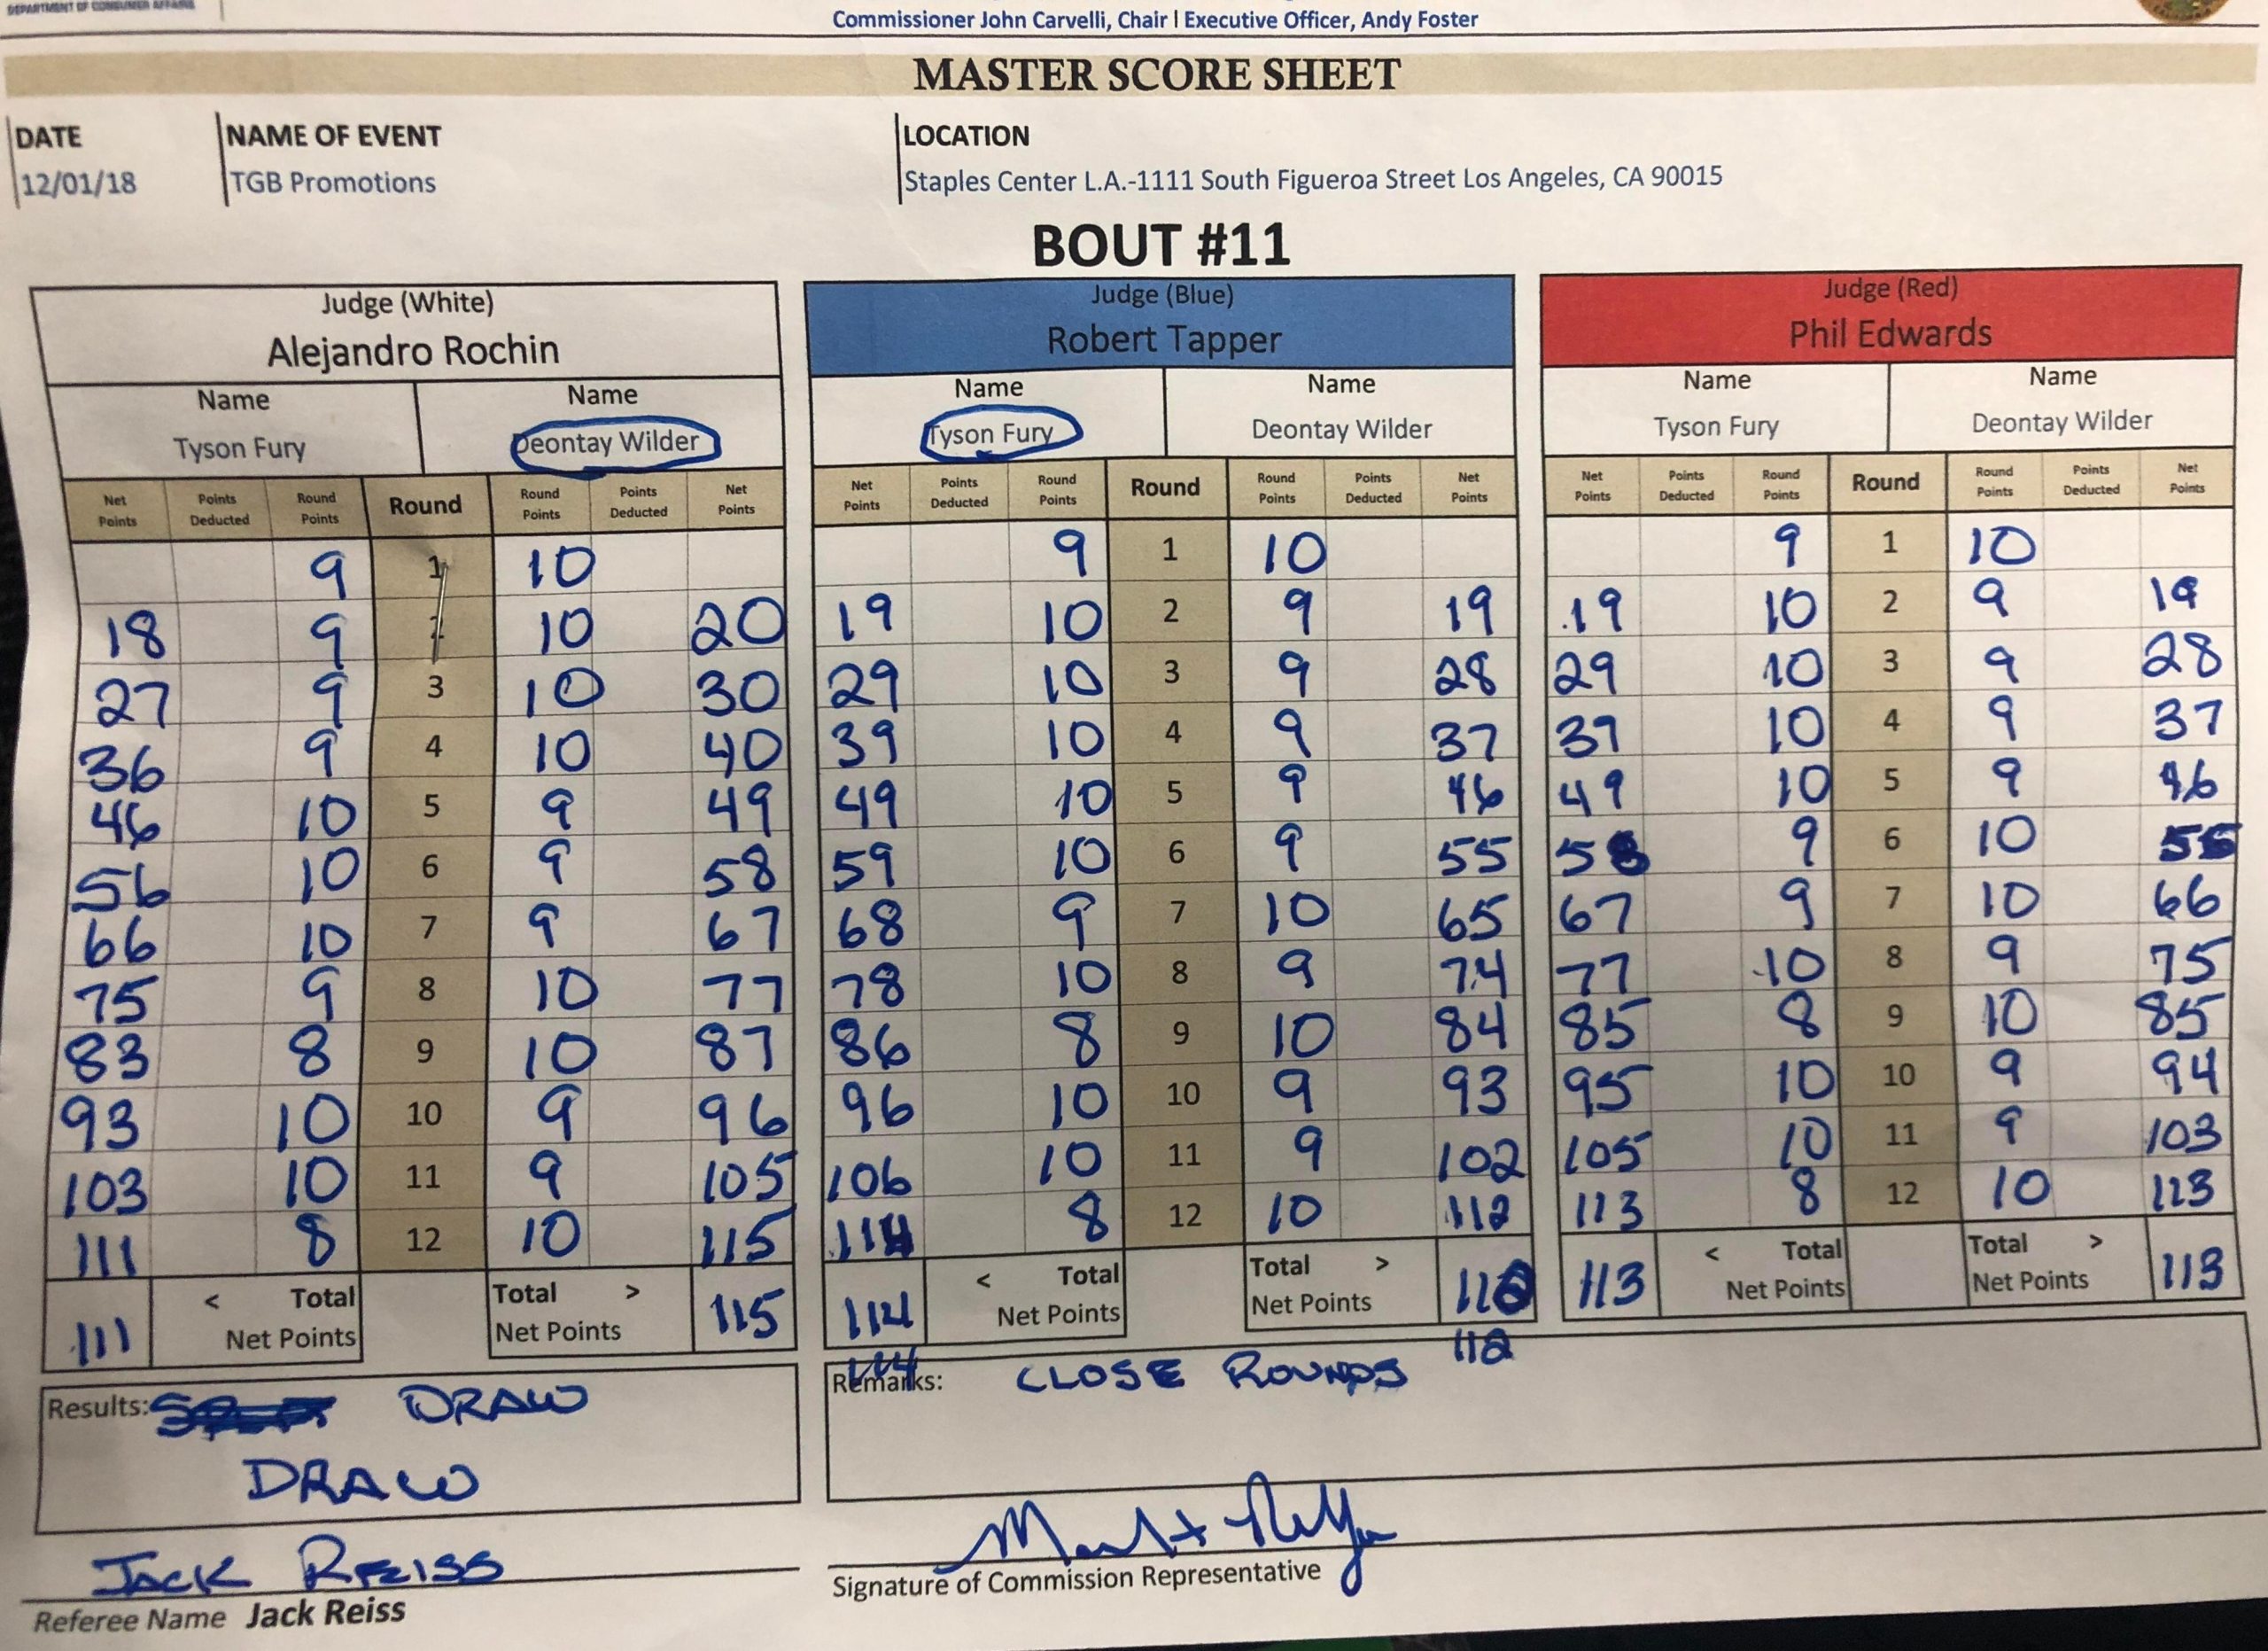 DEPARTMENT OF CONSUMER AFFAIRS
Commissioner John Carvelli, Chair | Executive Officer, Andy Foster
MASTER SCORE SHEET
DATE NAME OF EVENT LOCATION
12/01/18 TGB Promotions Staples Center L.A.-1111 South Figueroa Street Los Angeles, CA 90015
BOUT #11
Judge (White) Judge (Blue) Judge (Red)
Alejandro Rochin Robert Tapper Phil Edwards
Name Name Name Name Name Name
Tyson Fury Deontay Wilder Tyson Fury Deontay Wilder Tyson Fury Deontay Wilder
Net Points Points Deducted Round Points Round Round Points Points Deducted Net Points Net Points Points Deducted Round Points Round Round Points Points Deducted Net Points Net Points Points Deducted Round Points Round Round Points Points Deducted Net Points
9 1 10 9 1 10 9 1 10
18 9 2 10 20 19 10 2 9 19 19 10 2 9 19
27 9 3 10 30 29 10 3 9 28 29 10 3 9 28
36 9 4 10 40 39 10 4 9 37 39 10 4 9 37
46 10 5 9 49 49 10 5 9 46 49 10 5 9 46
56 10 6 9 58 59 10 6 9 55 58 9 6 10 56
66 10 7 9 67 68 9 7 10 65 67 9 7 10 66
75 9 8 10 77 78 10 8 9 74 77 10 8 9 75
83 8 9 10 87 86 8 9 10 84 85 8 9 10 85
93 10 10 9 96 96 10 10 9 93 95 10 10 9 94
103 10 11 9 105 106 10 11 9 102 105 10 11 9 103
111 8 12 10 115 114 8 12 10 112 113 8 12 10 113
111 < Total Net Points Total > Net Points 115 114 < Total Net Points Total > Net Points 112 113 < Total Net Points Total > Net Points 113
114 112
Results: DRAW
DRAW
Remarks: CLOSE ROUNDS
JACK REISS
Referee Name Jack Reiss
Signature of Commission Representative